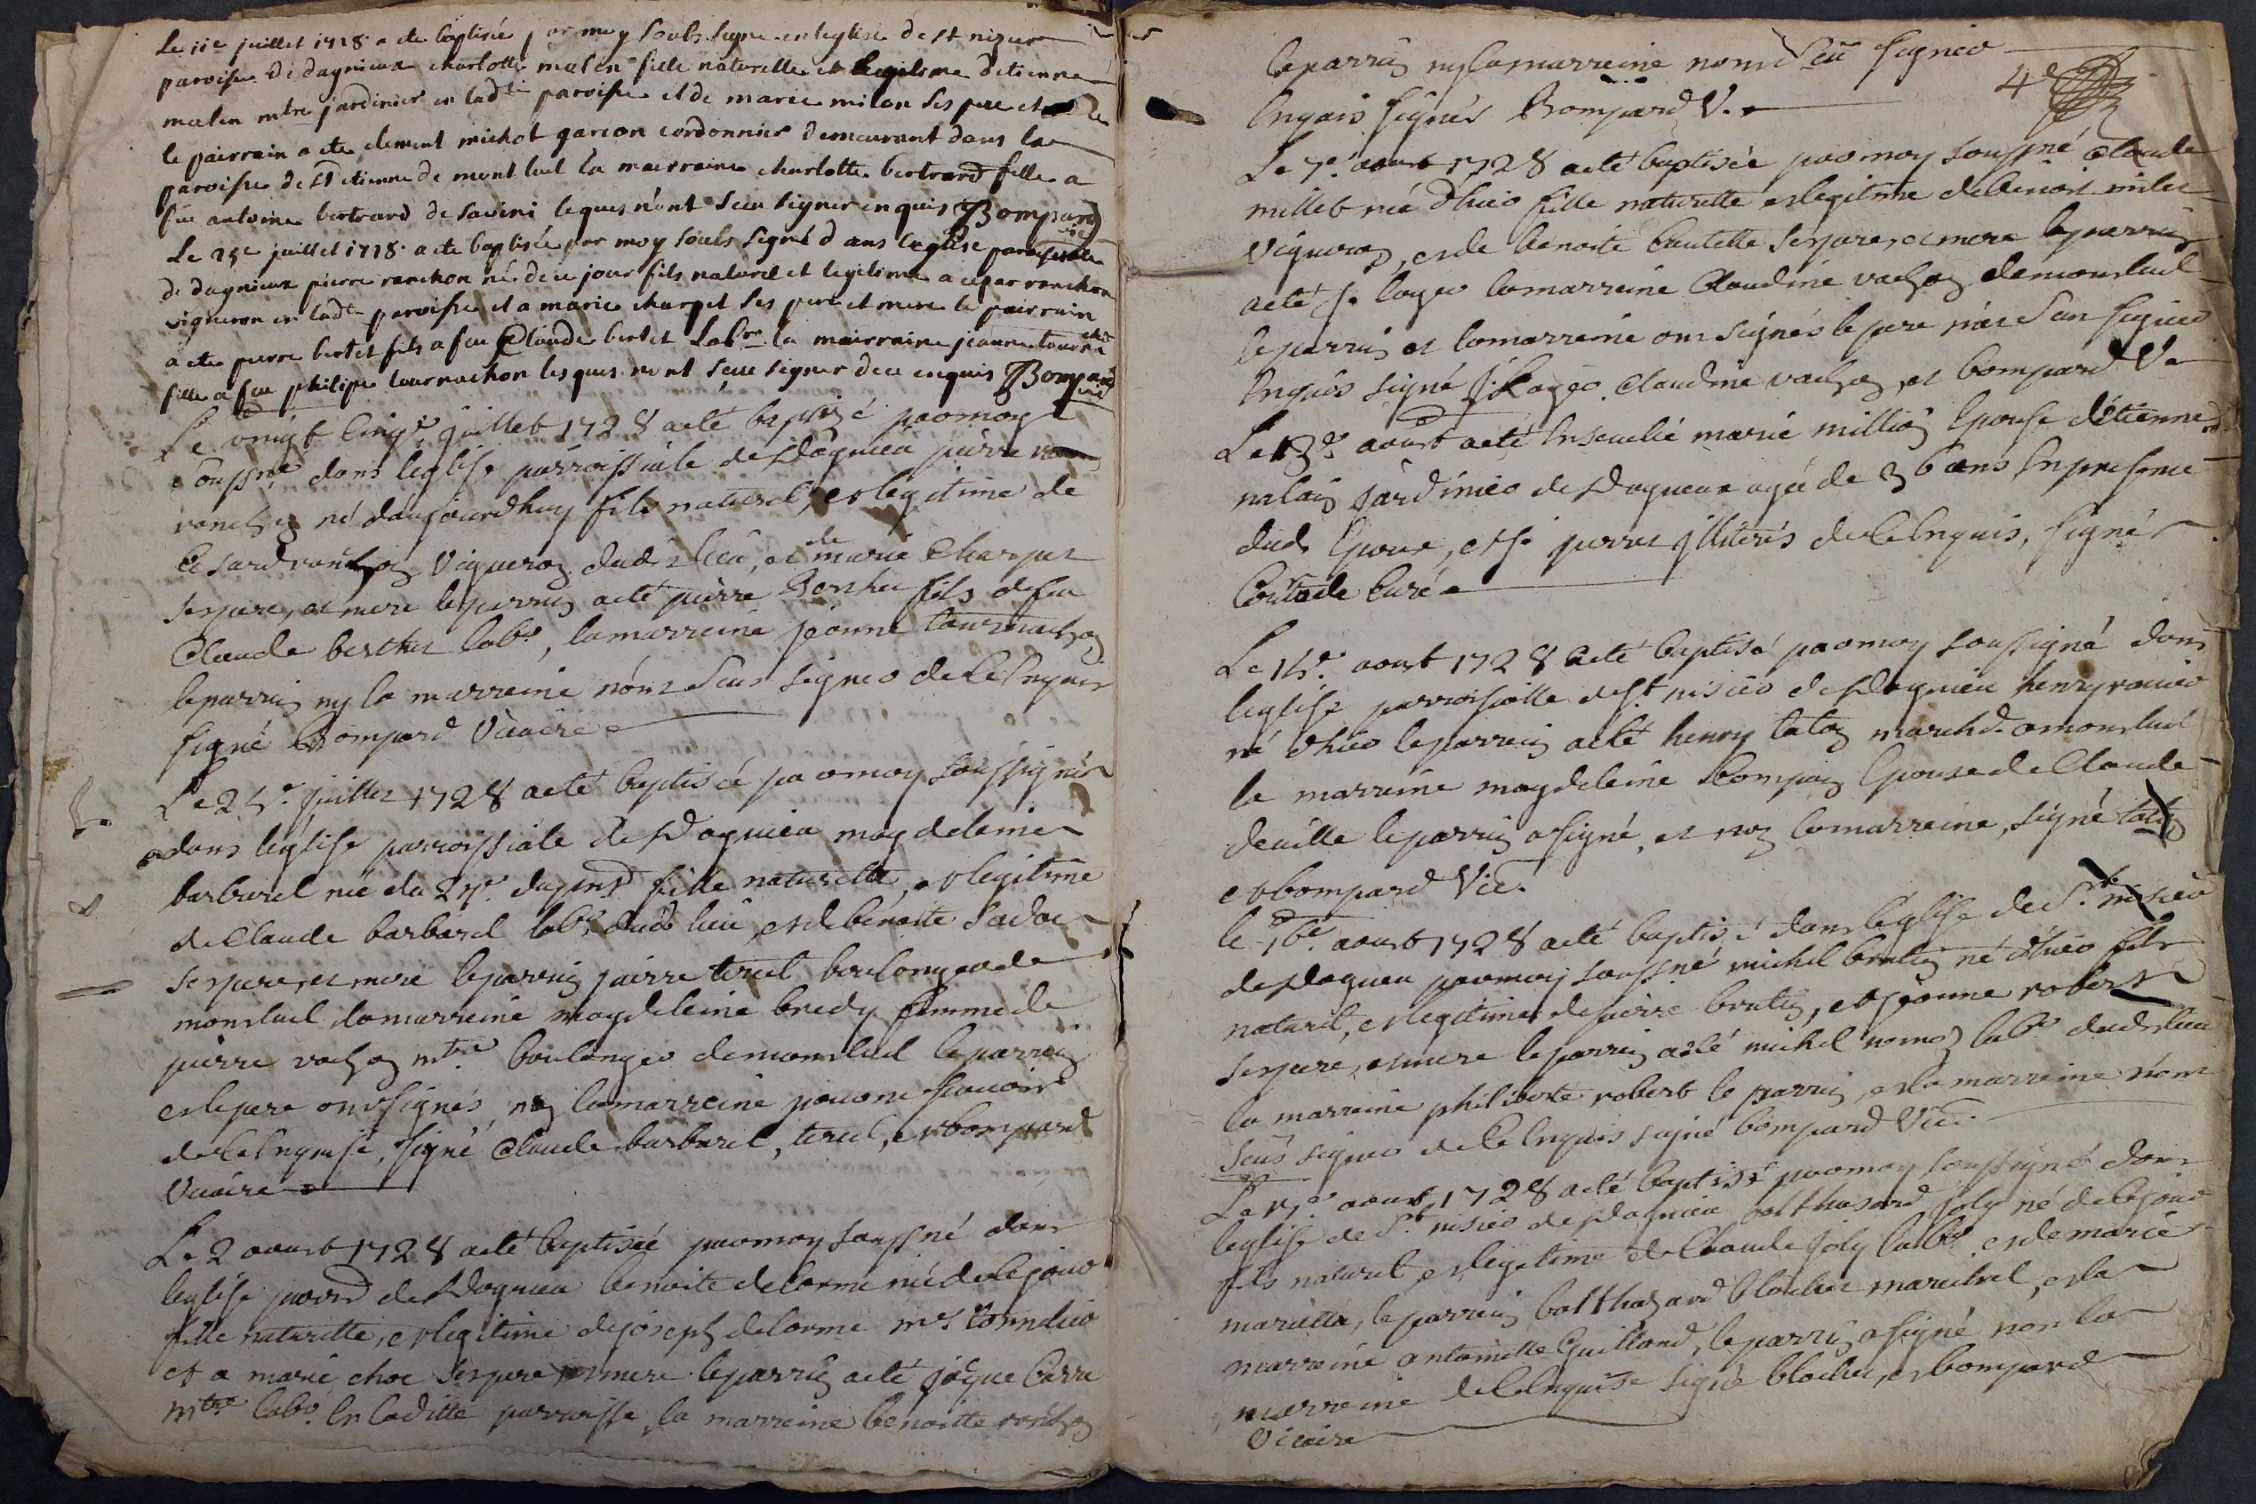 Le 11e juillet 1728 a ete baptisée par moy souls signe en leglise de st nizier
paroisse de dagnieux charlotte malen fille naturelle et legitime detienne
malen mtre jardinier en ladte paroisse et de marie milon ses pere et
le pairrain a ete clement michot garcon cordonnier demeurant dans la
paroisse de st etienne de montluel la mairraine charlotte bertrand fille a
feu antoine bertrand de savini lequels nont sceu signer enquis Bompard
Le 25e juillet 1728 a ete baptisée par moy souls signé dans leglise paroissialle
de dagnieux pierre ranchon né de ce jour fils naturel et legitime a cesar ranchon
vigneron en ladte paroisse et a marie charpet ses pere et mere le pairrain
a ete pierre bertet fils a feu Claude bertet Labr la mairraine jeanne tourna
fille a feu philipe tournachon lesquels nont sceu signer de ce enquis Bompard
Le vingt cinqe juillet 1728 a eté baptizé par moy
soussné dans leglise parroissiale de Dagnieu pierre
ranchon né daujourdhuy fils naturel, et legitime de
Cesard ranchon vigneron dudt lieu, et de marie Charpet
ses pere, et mere le parrin a eté pierre Berthet fils de feu
Claude berthet labr, la marreine jeanne tournachon
le parrin ny la marreine n'ont sceu signer de ce enquis
signé Bompard Vicaire
Le 25e juillet 1728 a eté baptisée par moy soussigné
dans léglise parroissiale de Dagnieu magdeleine
barbarel née du 24e du present fille naturelle, et legitime
de Claude barbarel labr dudt lieu, et de benoite
ses pere, et mere le parrin pierre teret boulonger de
montluel la marreine magdeleine bredy femme de
pierre vachon mtre boulanger de montluel le parrin
et le pere ont signés, non la marreine pour ne scavoir
de ce enquise, signé Claude barbarel, teret, et bompard
Vicaire
Le 2 aoust 1728 a eté baptisée par moy soussné dans
leglise parrd de Dagnieu benoite delorme née de ce jour
fille naturelle, et legitime de joseph delorme
et a marie choc ses pere et mere le parrin a eté jaque Carre
mtre labr en laditte parroisse, la marreine benoitte ranchon
le parrin ny la marreine n'ont sceu signer
enquis signé Bompard V.
4e
Le 7e aoust 1728 a eté baptisée par moy soussné Claude
millet née d'hier fille naturelle et legitime de benoit millet
vigneron, et de benoite ses pere, et mere le parrin
a eté la marreine Claudine vachon de montluel
le parrin et la marreine ont signés le pere n'ayant sceu signer
enquis signé Claudine vachon, et bompard V.
Le 13e aoust a eté ensevelié marie millon epouse d'étienne
malain jardinier de Dagneux agée de 36 ans en presence
dudt epoux, et de pierre illiterés de ce enquis, signé
curé
Le 15e aoust 1728 a eté baptisé par moy soussigné dans
leglise parroissialle de St nisier de Dagnieu henry
né d'hier le parrein a eté henry marchd a montluel
la marreine magdeleine epouse de Claude
le parrin a signé, et non la marreine, signé
et bompard Vic.
le 16e aoust 1728 a eté baptisé dans l'église de St nisier
de Dagneu par moy soussné michel né d'hier fils
naturel, et legitime de pierre et jeanne robert
ses pere, et mere le parrein a eté michel labr dudt lieu
la marreine philiberte robert le parrin, et la marreine n'ont
sceus signer de ce enquis signé bompard Vic.
Le 17e aoust 1728 a eté baptisé par moy soussigné dans
leglise de St nisier de Dagnieu balthasard joly né de ce jour
fils naturel, et legitime de Claude joly labr, et de marie
marietta, le parrein balthazard blachet marechal, et la
marreine antoinette Guilland, le parrin a signé non la
marreine de ce enquise signé blachet, et bompard
Vicaire